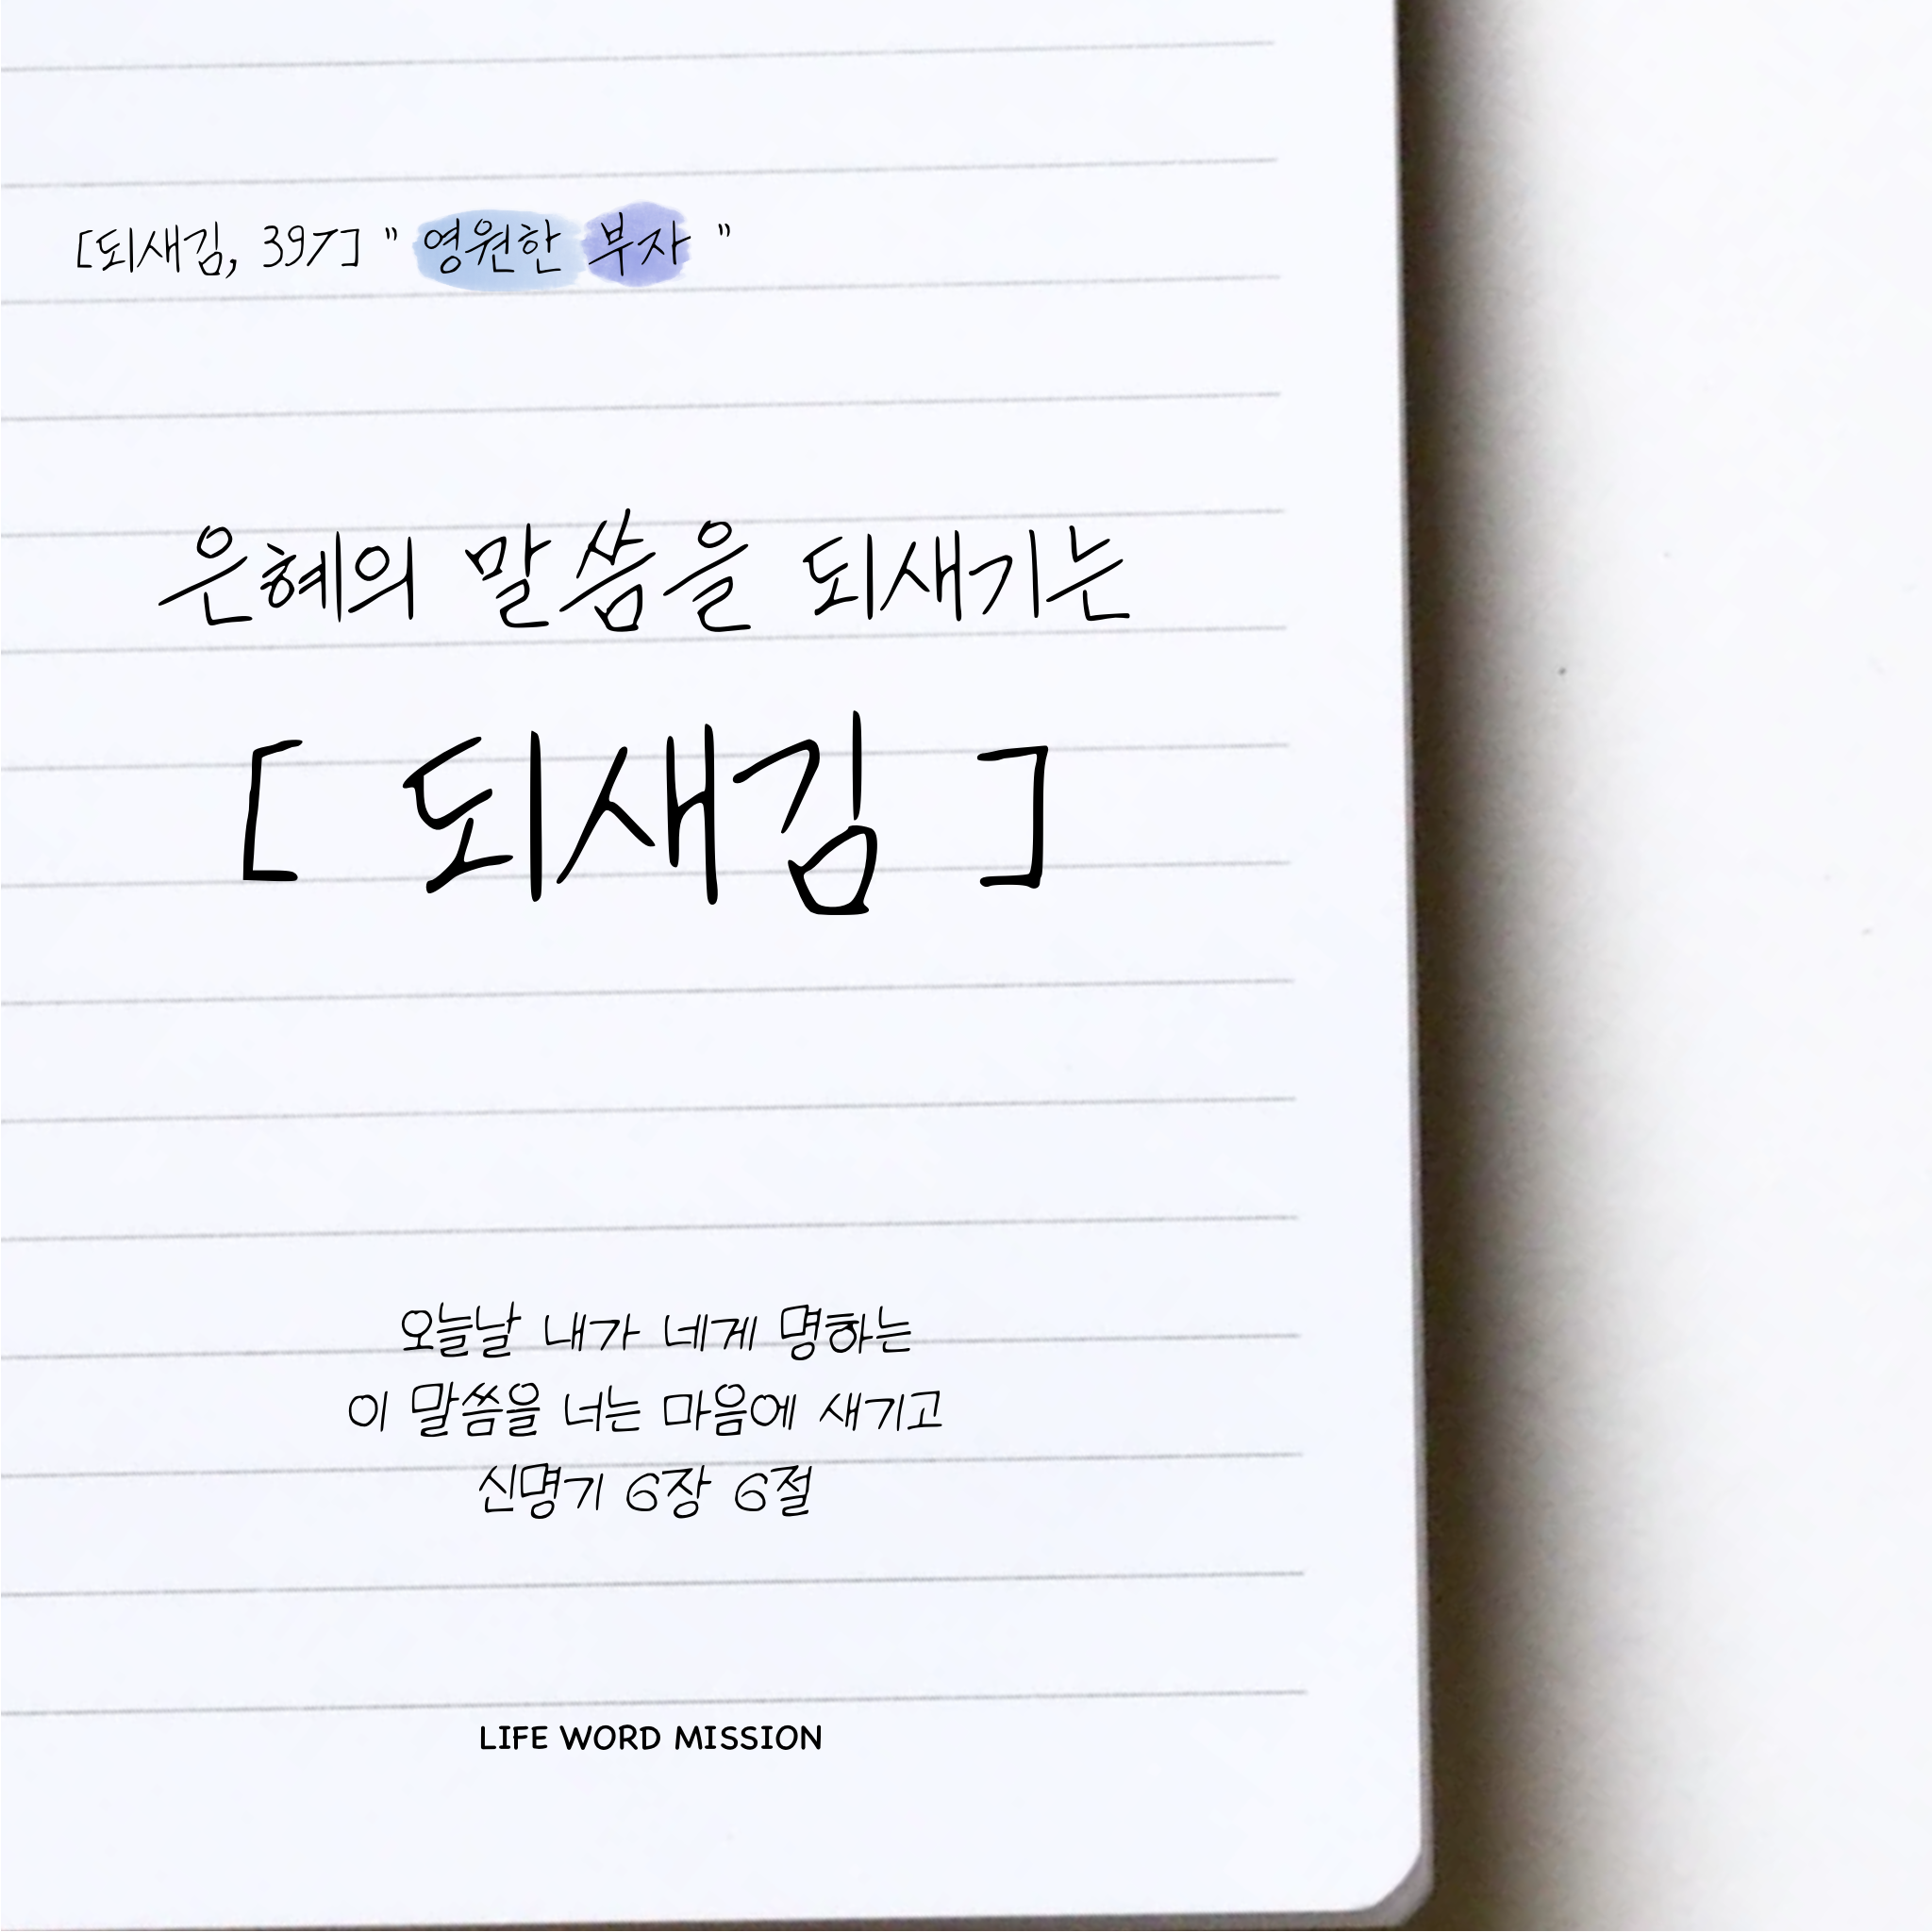 [되새김, 397] " 영원한 부자 "
은혜의 말씀을 되새기는
[ 되새김 ]
오늘날 내가 네게 명하는
이 말씀을 너는 마음에 새기고
신명기 6장 6절
LIFE WORD MISSION